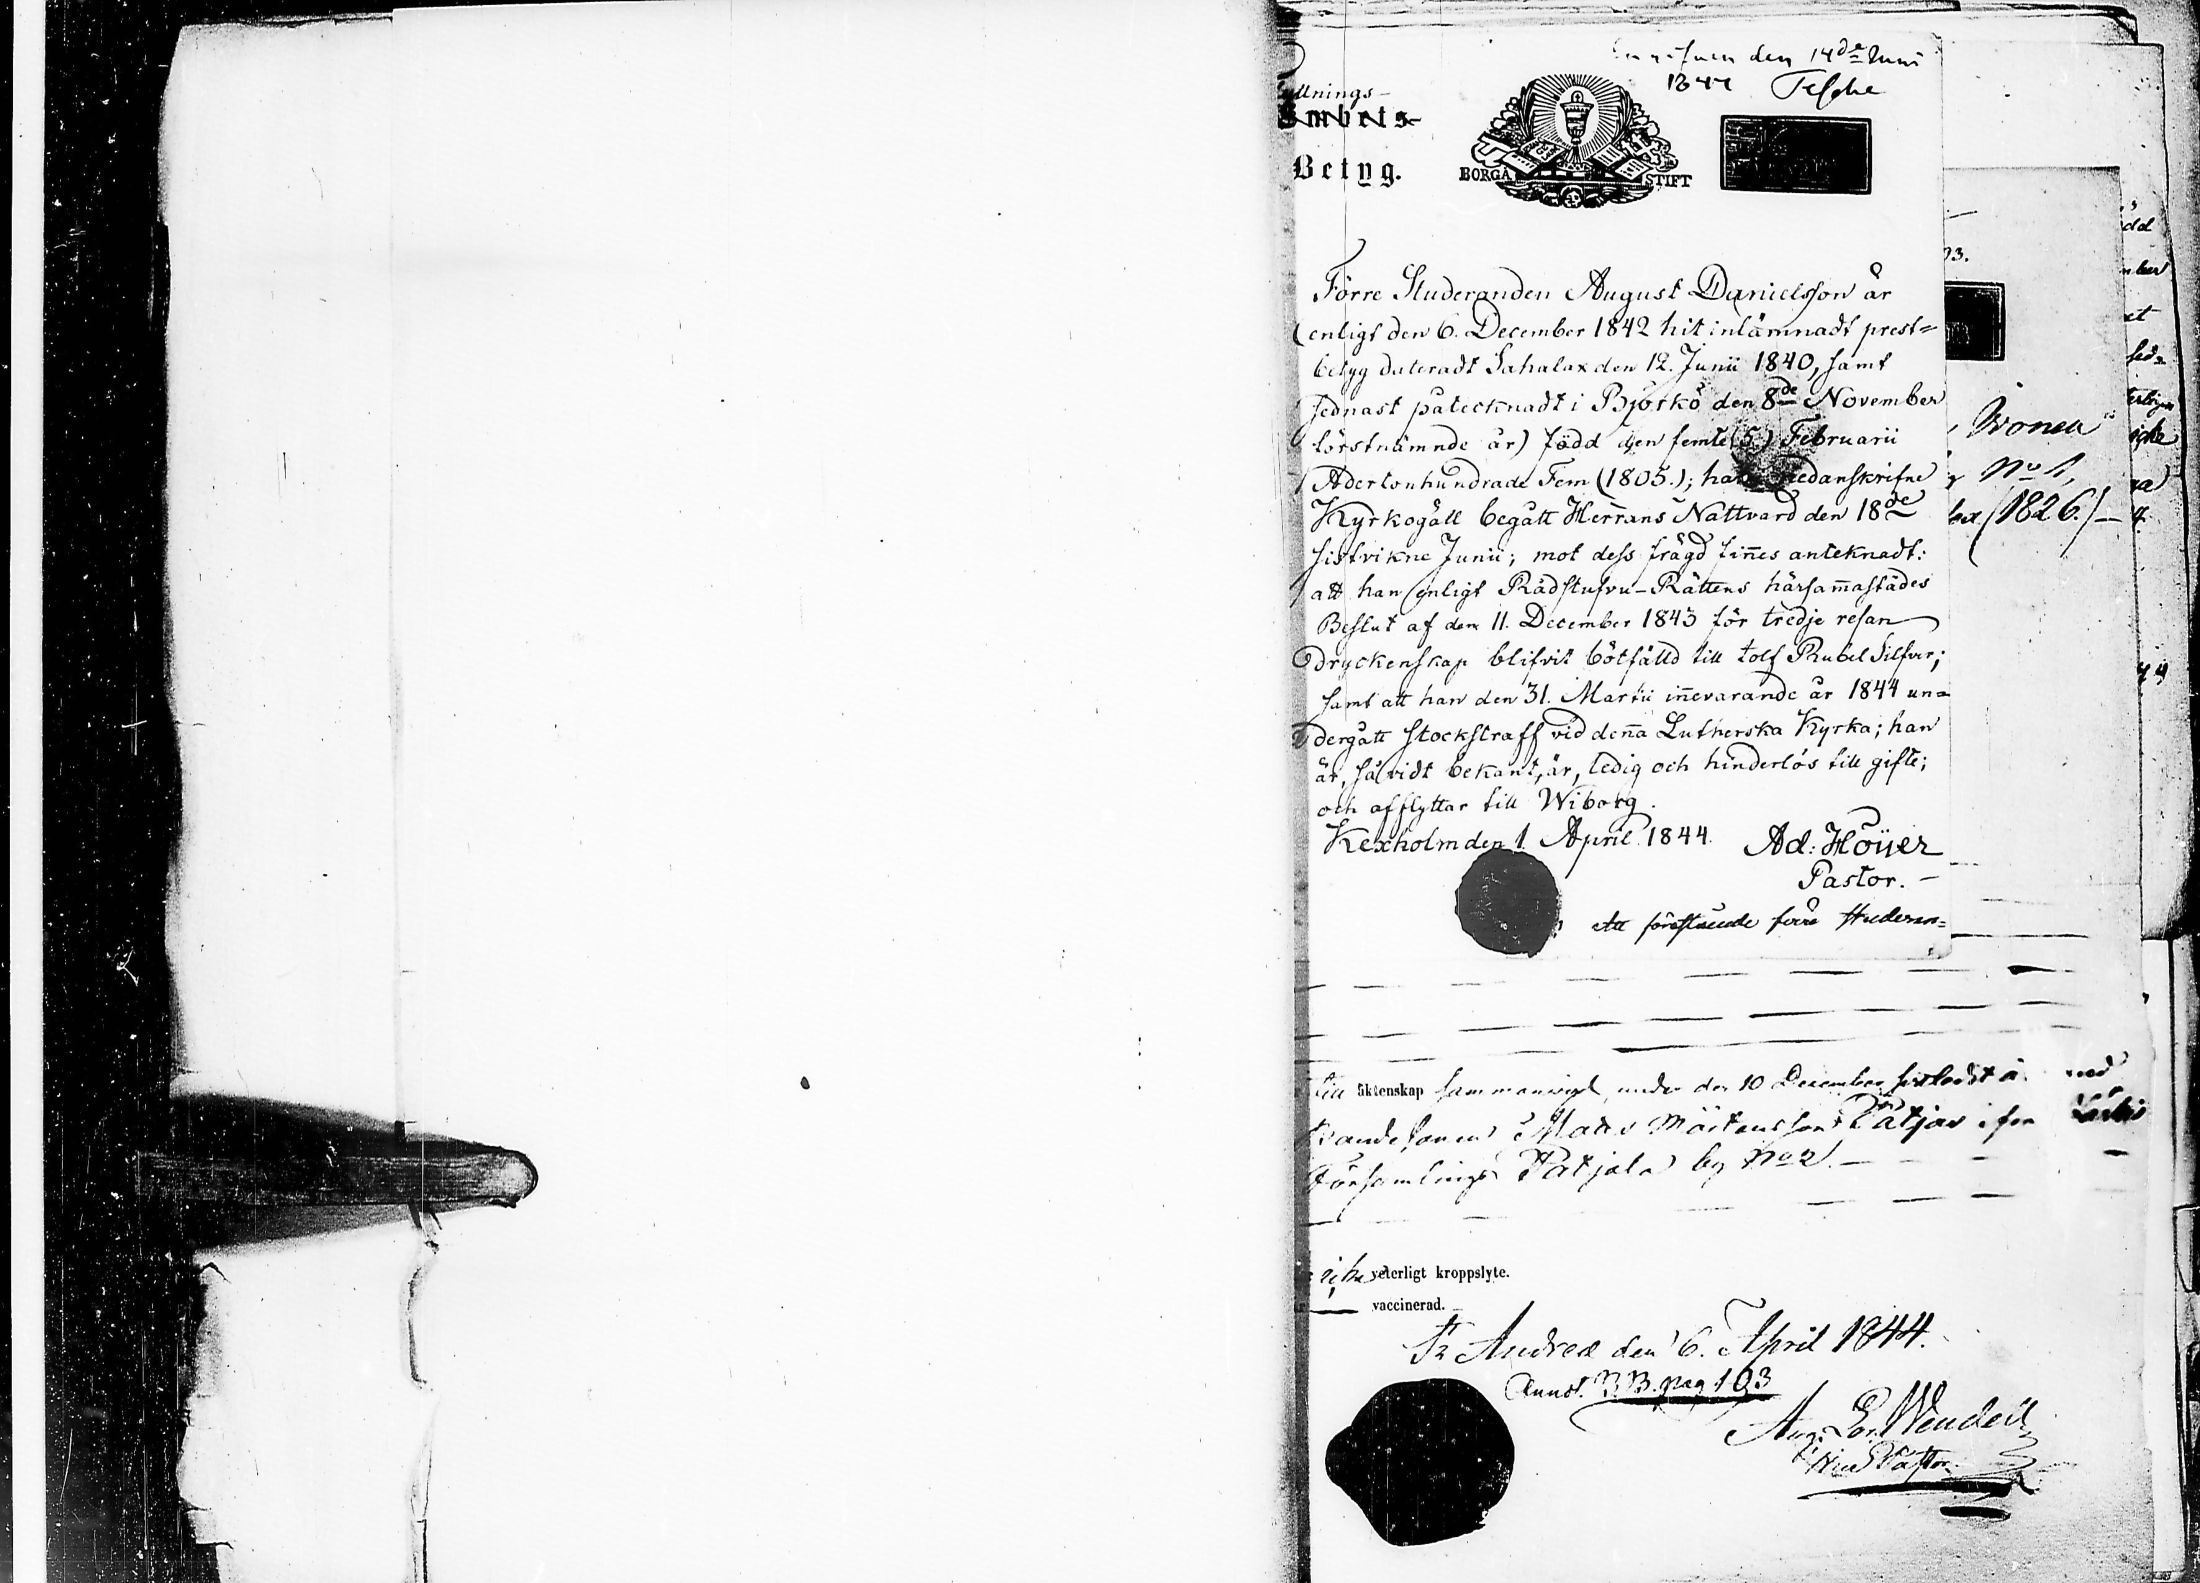 den 14de Juni
1844
Flyttnings-
Embets-
Betyg.
BORGÅ STIFT
Förre Studeranden August Danielsson är
(enligt den 6. December 1842 hit inlämnadt prest=
betyg dateradt Sahalax den 12. Junii 1840, samt
sednast påtecknadt i Björkö den 8de November
förstnämnde år) född den femte (5) Februarii
Adertonhundrade Fem (1805.); har nedanskrifne
Kyrkogäll begått Herrans Nattvard den 18de
sistvikne Junii; mot dess frägd fin̄es anteknadt:
att han enligt Rådstufvu-Rättens härsam̄astädes
Beslut af den 11. December 1843 för tredje resan
dryckenskap blifvit bötfälld till tolf Rubel Silfver;
samt att han den 31. Martii in̄evarande år 1844 un=
dergått stockstraff vid den̄a Lutherska Kyrka; han
är, så vidt bekant, är, ledig och hinderlös till gifte;
och afflyttar till Wiborg.
Kexholm den 1 April 1844. Ad: Höijer
Pastor. –
Att förestående förre Studeran=
93.
No 1,
(1826.)
till äktenskap sammanvigd under den 10 December sistledit å. med
Bondesonen Mats Mårtensson Pätjas ifrån
Församlings Patjala by No 2. –
icke veterligt kroppslyte.
vaccinerad.
St Andreæ den 6. April 1844.
Annot. B.B. pag 193
Aug. Lor. Wendell
Pastor